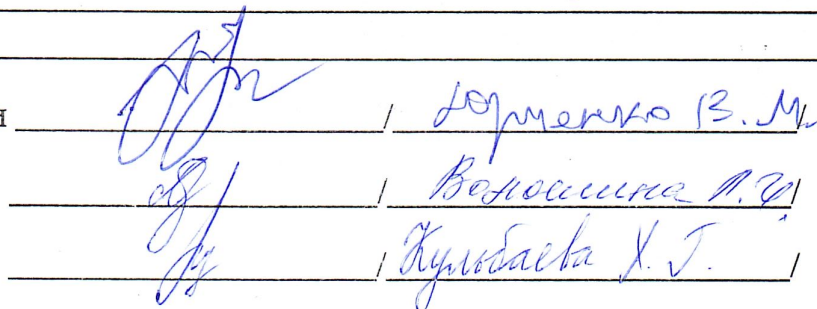 / Юрченко В. М/
/ Волошина Л. Ф/
/ Кульбаева Х. Г. /